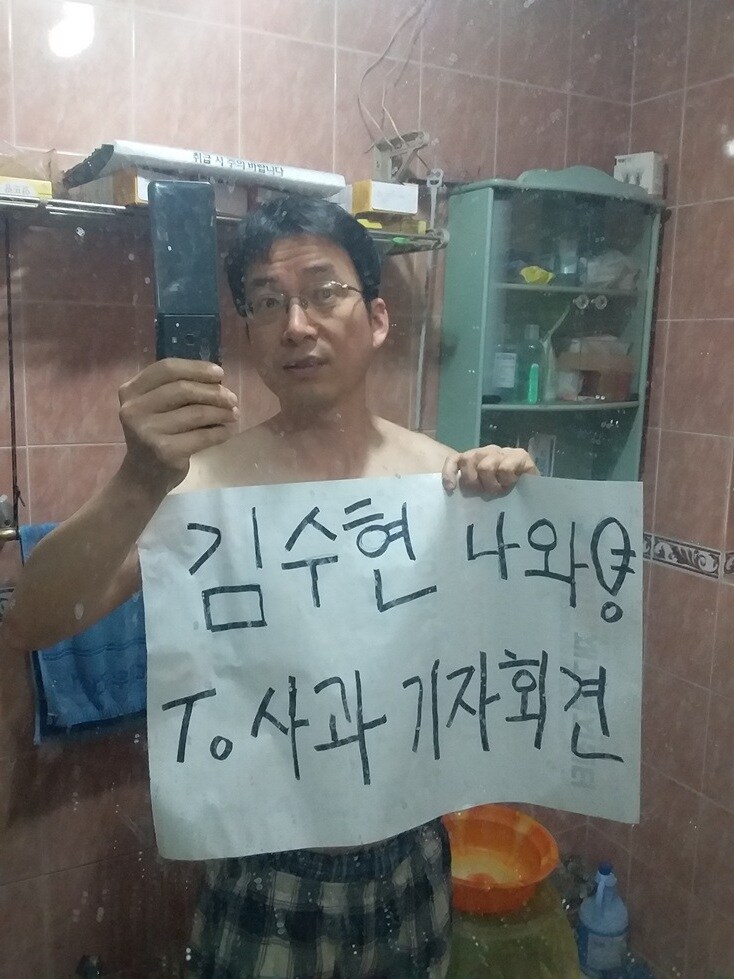 취급 시 주의 바랍니다
김수현 나와용
To 사과 기자회견